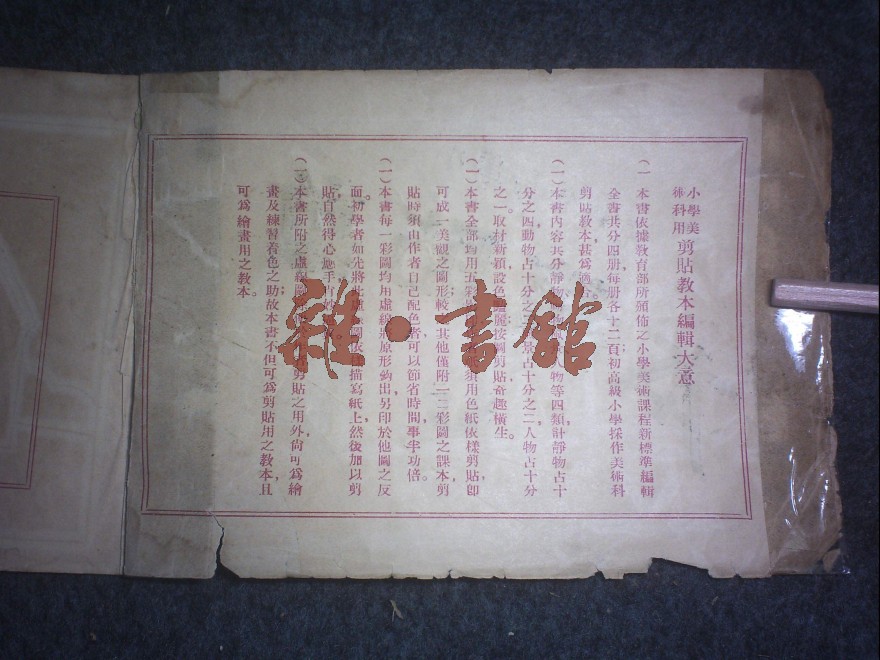 小學美術科用 剪貼教本編輯大意
(一)本書依據教育部所頒佈之小學美術課程新標準編輯
全書共分四册，每册各十二頁，初高級小學採作美術科
剪貼教本，甚爲適
(一)本書內容共分靜物 物等四類，計靜物占十
分之四，動物占十分之 景占十分之二，人物占十分
之一。取材新穎，設色 麗，按圖剪貼，奇趣橫生。
(一)本書全部均用五彩 須用色紙依樣剪貼，卽
可成一美觀之圖形，較 其他僅附一二彩圖之課本，剪
貼時須由作者自己配色者，可以節省時間，事半功倍。
(一)本書每一彩圖均用虛線將原形鈎出，另印於他圖之反
面。初學者如先將此虛 圖依 描寫紙上，然後加以剪
貼，自然得心應手
(一)本書所附之虛線圖 剪貼之用外，尙可爲繪
畫及練習着色之助，故本書不但可爲剪貼用之敎本，且
可爲繪畫用之敎本。
雜·書館